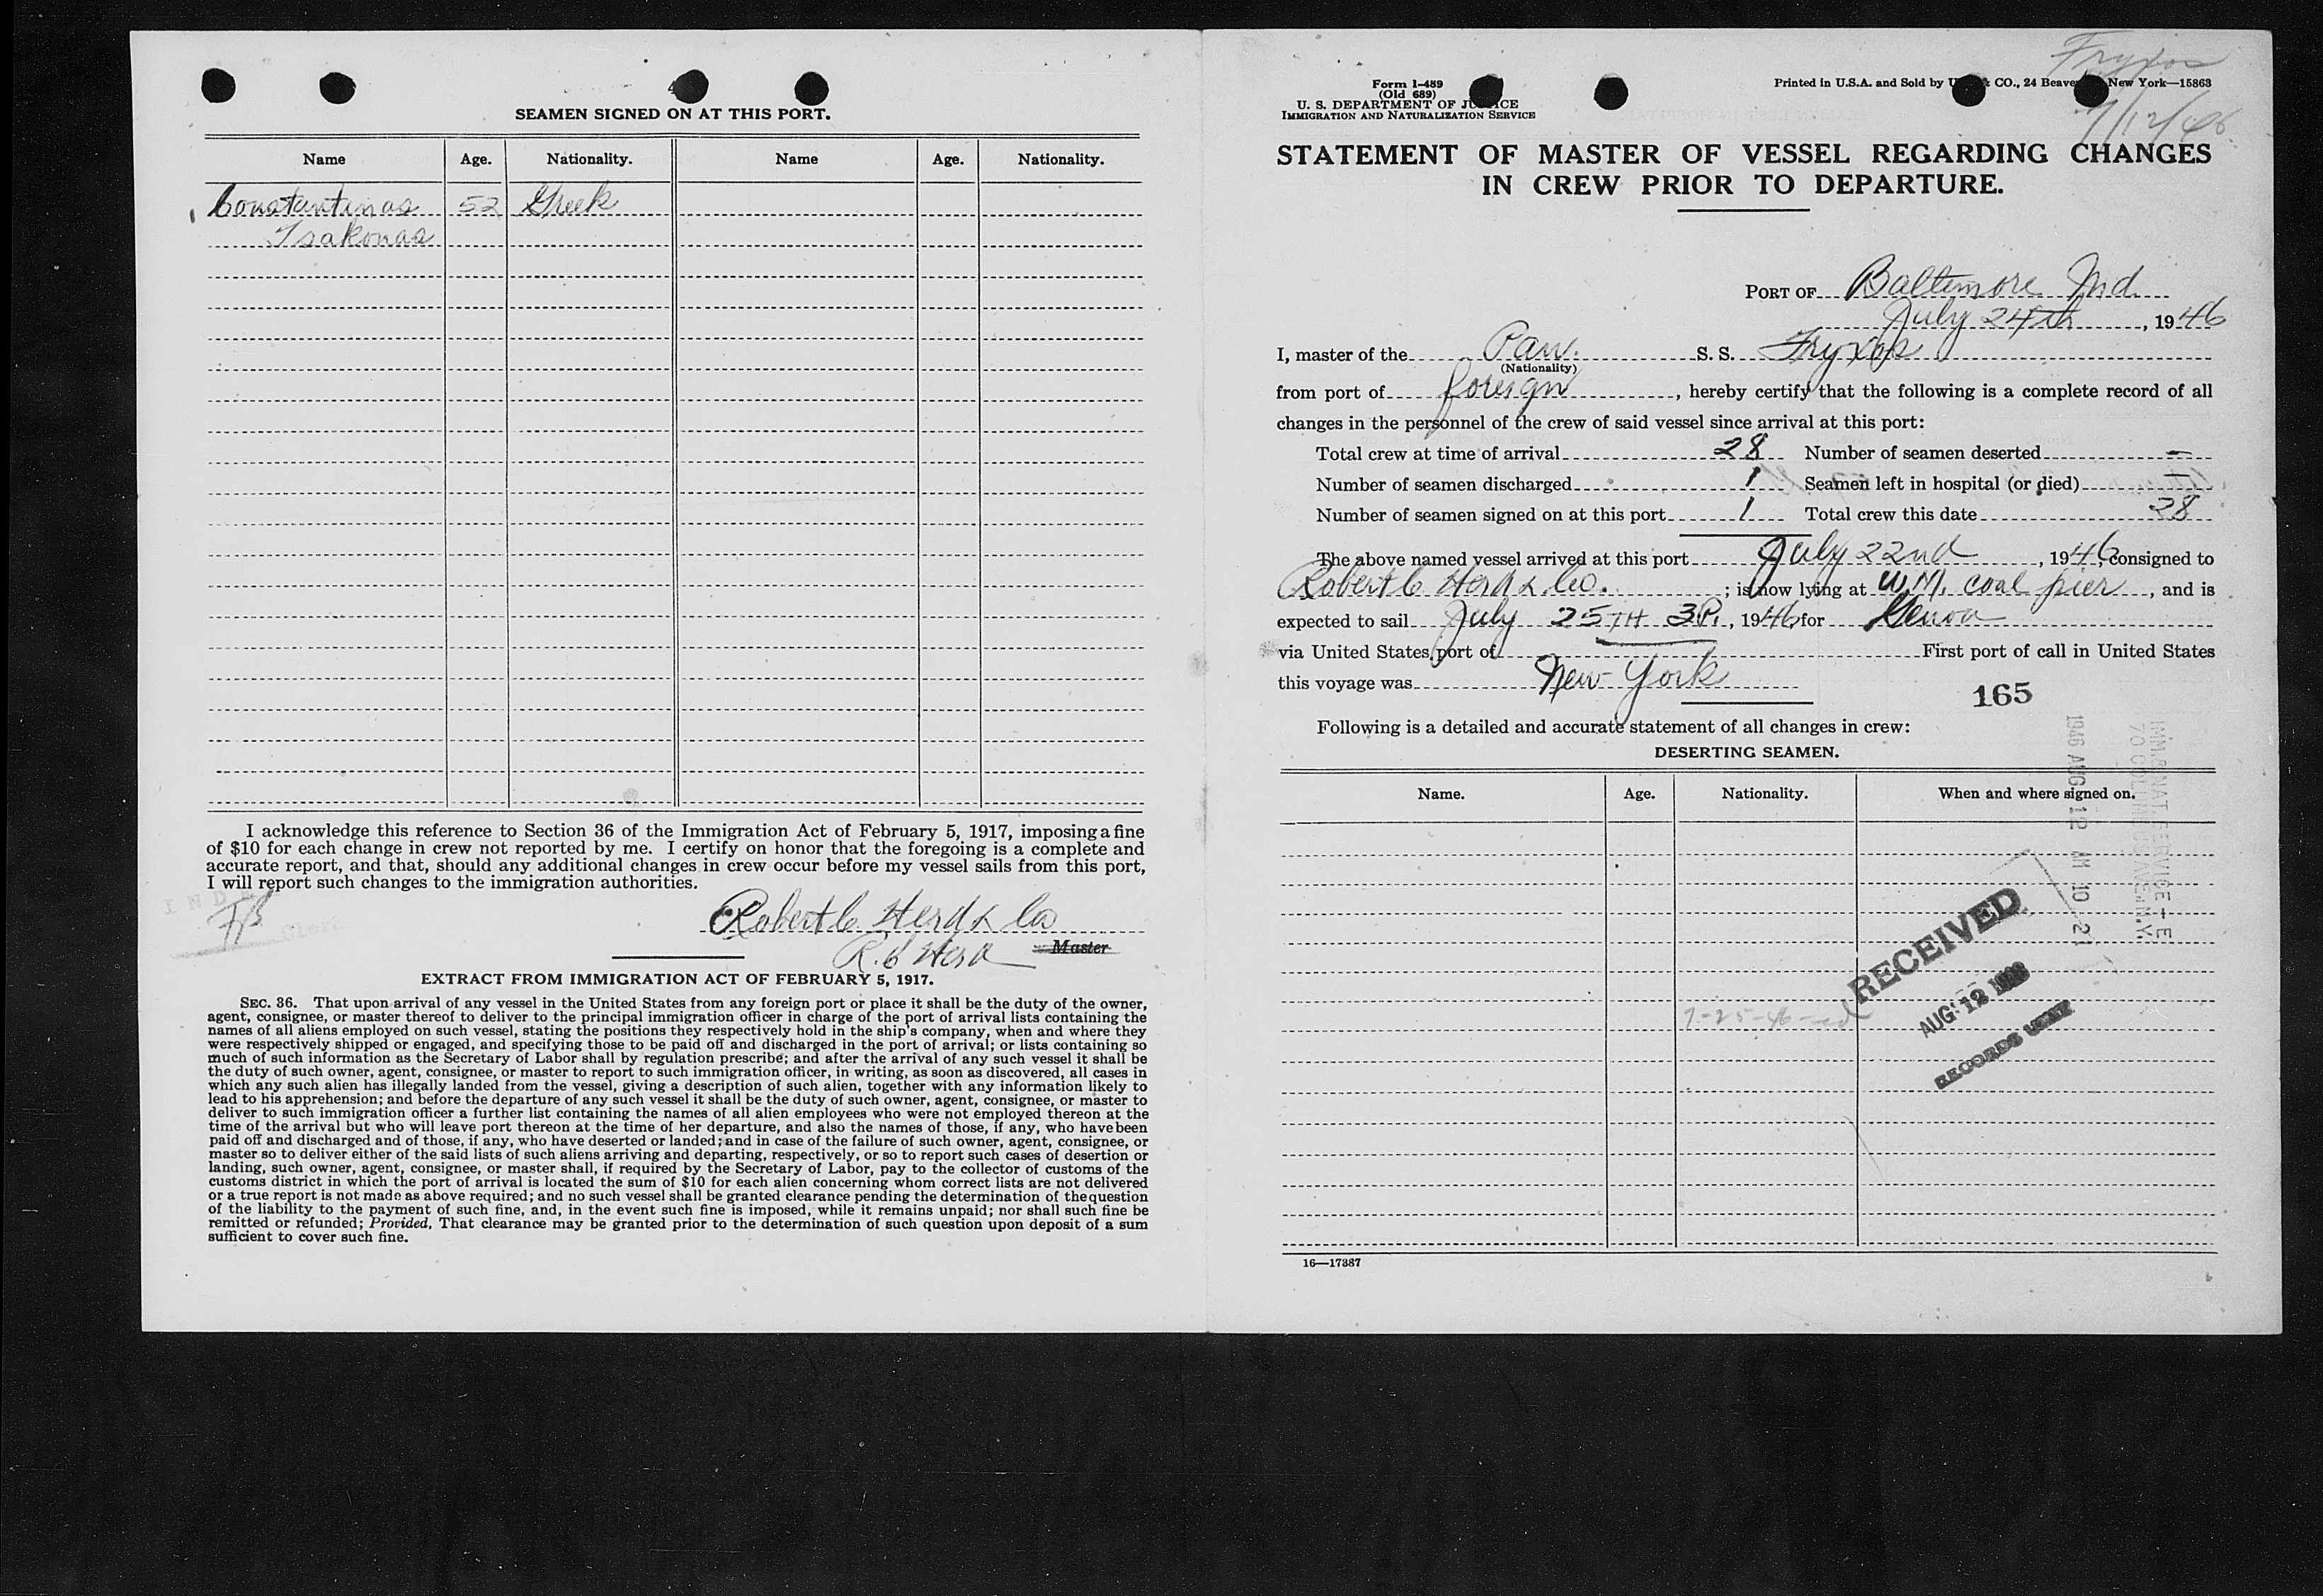 SEAMEN SIGNED ON AT THIS PORT.
Name Age. Nationality. Name Age. Nationality.
Constantinos 52 Greek
Tsakonas
I acknowledge this reference to Section 36 of the Immigration Act of February 5, 1917, imposing a fine
of $10 for each change in crew not reported by me. I certify on honor that the foregoing is a complete and
accurate report, and that, should any additional changes in crew occur before my vessel sails from this port,
I will report such changes to the immigration authorities.
Robert C Herd & Co
R. C Herd Master
EXTRACT FROM IMMIGRATION ACT OF FEBRUARY 5, 1917.
SEC. 36. That upon arrival of any vessel in the United States from any foreign port or place it shall be the duty of the owner,
agent, consignee, or master thereof to deliver to the principal immigration officer in charge of the port of arrival lists containing the
names of all aliens employed on such vessel, stating the positions they respectively hold in the ship's company, when and where they
were respectively shipped or engaged, and specifying those to be paid off and discharged in the port of arrival; or lists containing so
much of such information as the Secretary of Labor shall by regulation prescribe; and after the arrival of any such vessel it shall be
the duty of such owner, agent, consignee, or master to report to such immigration officer, in writing, as soon as discovered, all cases in
which any such alien has illegally landed from the vessel, giving a description of such alien, together with any information likely to
lead to his apprehension; and before the departure of any such vessel it shall be the duty of such owner, agent, consignee, or master to
deliver to such immigration officer a further list containing the names of all alien employees who were not employed thereon at the
time of the arrival but who will leave port thereon at the time of her departure, and also the names of those, if any, who have been
paid off and discharged and of those, if any, who have deserted or landed; and in case of the failure of such owner, agent, consignee, or
master so to deliver either of the said lists of such aliens arriving and departing, respectively, or so to report such cases of desertion or
landing, such owner, agent, consignee, or master shall, if required by the Secretary of Labor, pay to the collector of customs of the
customs district in which the port of arrival is located the sum of $10 for each alien concerning whom correct lists are not delivered
or a true report is not made as above required; and no such vessel shall be granted clearance pending the determination of the question
of the liability to the payment of such fine, and, in the event such fine is imposed, while it remains unpaid; nor shall such fine be
remitted or refunded; Provided, That clearance may be granted prior to the determination of such question upon deposit of a sum
sufficient to cover such fine.
Fryxos
7/12/46
Form I-489
(Old 689)
U. S. DEPARTMENT OF JUSTICE
IMMIGRATION AND NATURALIZATION SERVICE
Printed in U.S.A. and Sold by CO., 24 Beaver New York—15863
STATEMENT OF MASTER OF VESSEL REGARDING CHANGES
IN CREW PRIOR TO DEPARTURE.
PORT OF Baltimore Md.
July 24th, 1946
I, master of the Pan. S. S. Fryxos
(Nationality)
from port of foreign, hereby certify that the following is a complete record of all
changes in the personnel of the crew of said vessel since arrival at this port:
Total crew at time of arrival 28 Number of seamen deserted -
Number of seamen discharged 1 Seamen left in hospital (or died)
Number of seamen signed on at this port 1 Total crew this date 28
The above named vessel arrived at this port July 22nd, 1946, consigned to
Robert C Herd & Co. ; is now lying at W.M. coal pier, and is
expected to sail July 25TH 3P., 1946, for Genoa
via United States port of First port of call in United States
this voyage was New York
165
Following is a detailed and accurate statement of all changes in crew:
DESERTING SEAMEN.
Name. Age. Nationality. When and where signed on.
1946 AUG 12 AM 10 21
RECEIVED
AUG 12 1946
RECORDS
7-25-46
16—17387